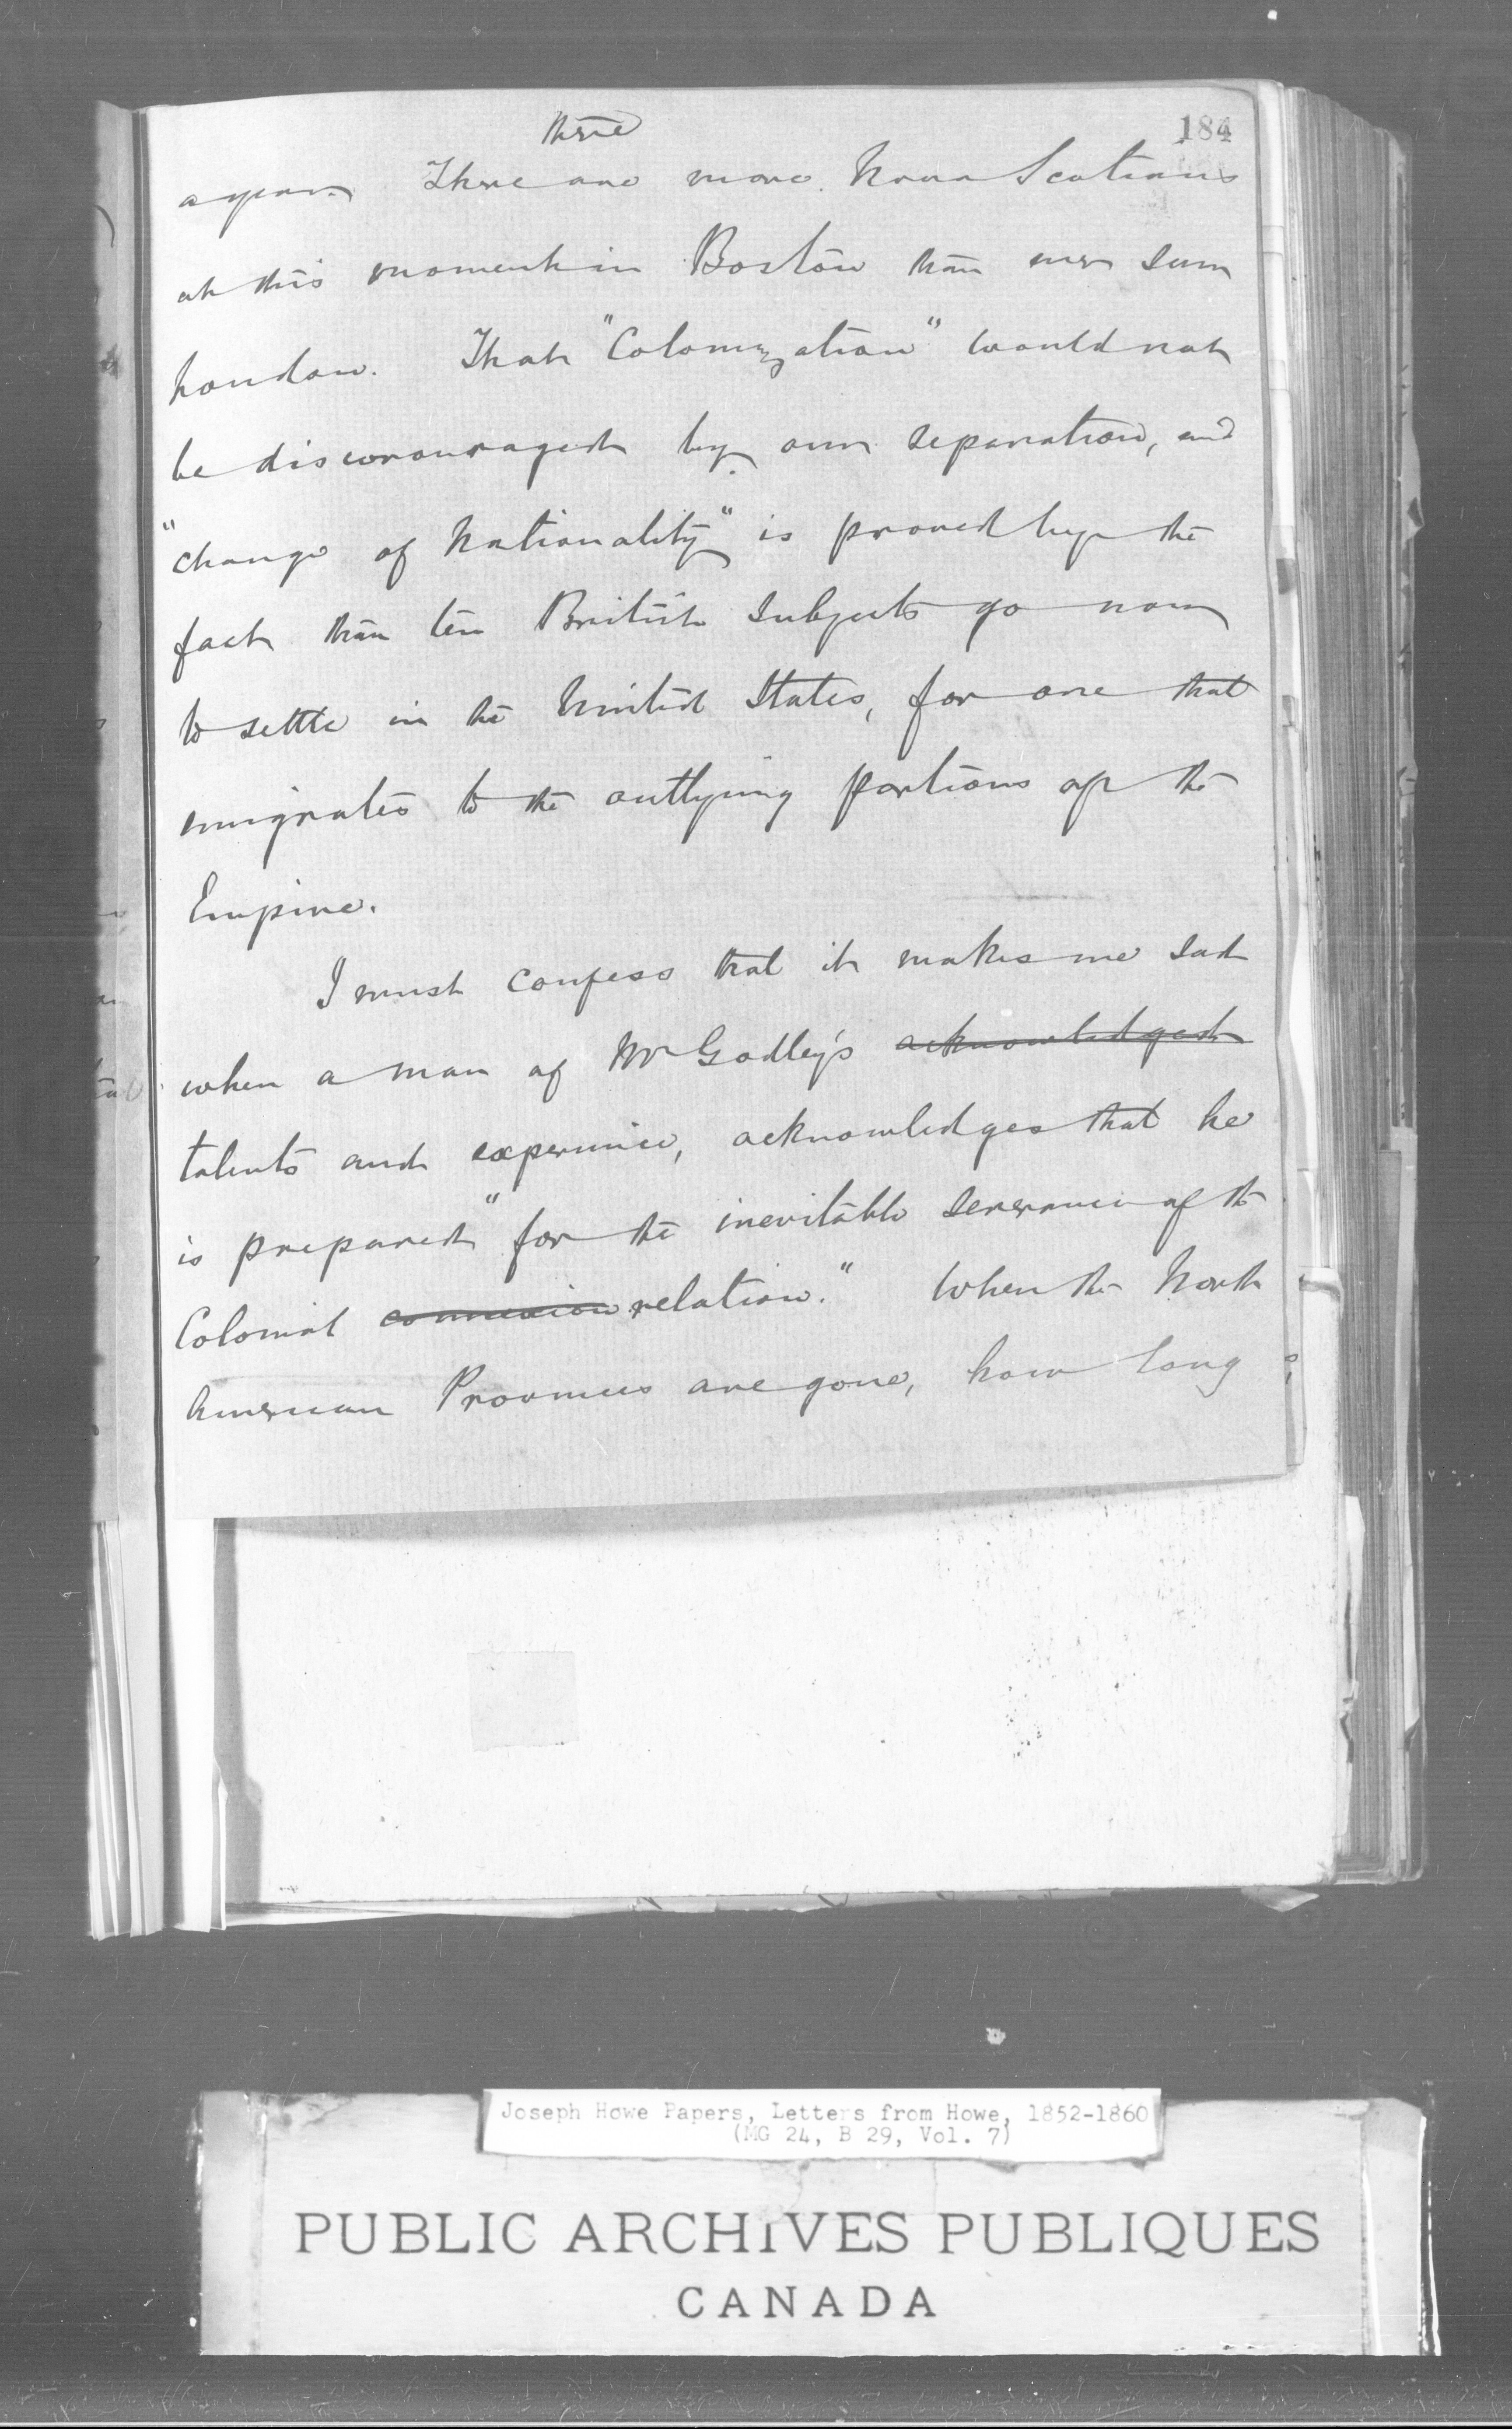 184
there
a year. There are more Nova Scotians
at this moment in Boston than ever saw
London. That "Colonization" would not
be discouraged by our separation, and
"change of Nationality" is proved by the
fact than ten British Subjects go now
to settle in the United States, for one that
emigrates to the outlying portions of the
Empire.
I must confess that it makes me sad
when a man of Mr Godley's acknowledged
talents and experience, acknowledges that he
is prepared "for the inevitable severance of the
Colonial connexion relation." When the North
American Provinces are gone, how long
Joseph Howe Papers, Letters from Howe, 1852-1860
(MG 24, B 29, Vol. 7)
PUBLIC ARCHIVES PUBLIQUES
CANADA